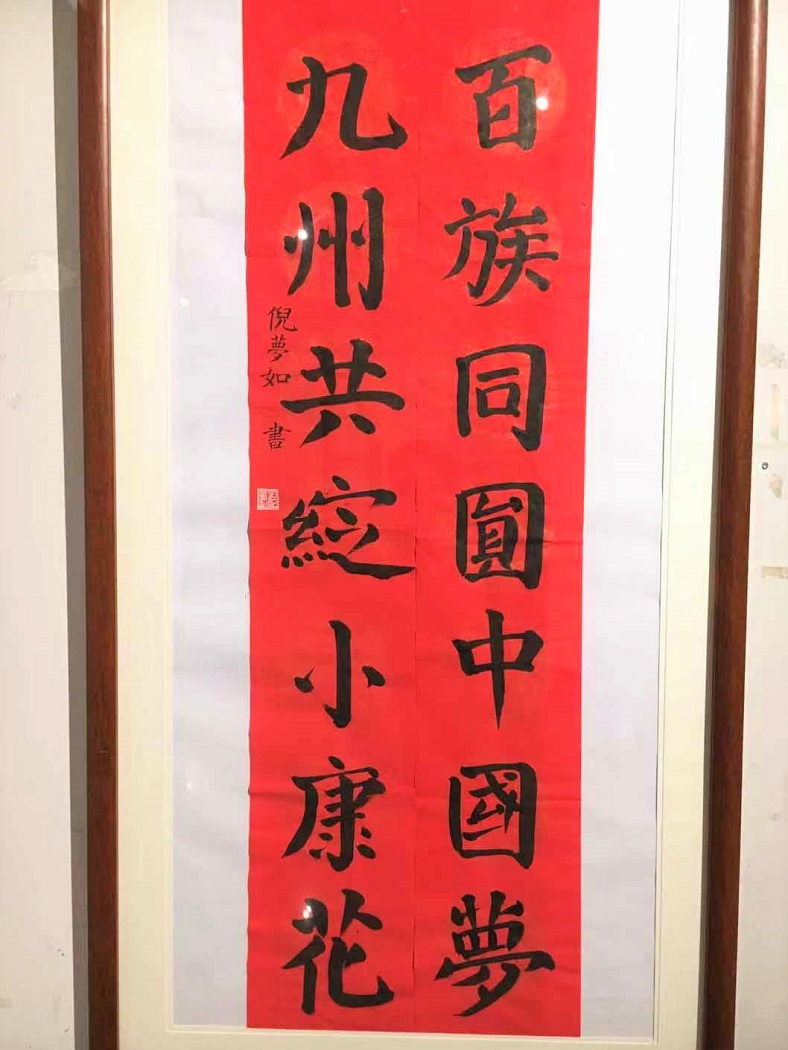 百族同圓中國夢
九州共綻小康花
倪夢如 書